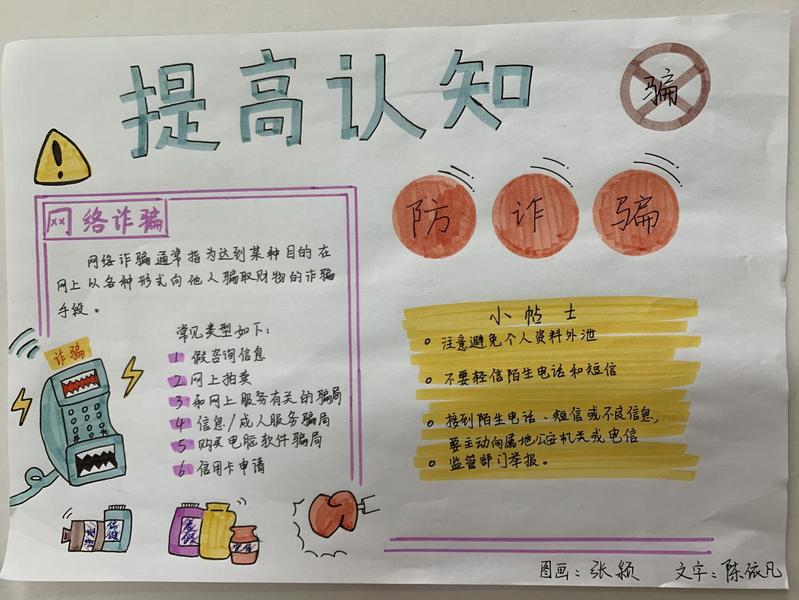 提高认知
骗
防 诈 骗
网络诈骗
网络诈骗通常指为达到某种目的在
网上以各种形式向他人骗取财物的诈骗
手段。
常见类型如下:
1 假咨询信息
2 网上拍卖
3 和网上服务有关的骗局
4 信息/成人服务骗局
5 购买电脑软件骗局
6 信用卡申请
诈骗
小帖士
注意避免个人资料外泄
不要轻信陌生电话和短信
接到陌生电话、短信或不良信息,
要主动向属地公安机关或电信
监管部门举报。
保健
虚假
图画:张颖 文字:陈依凡